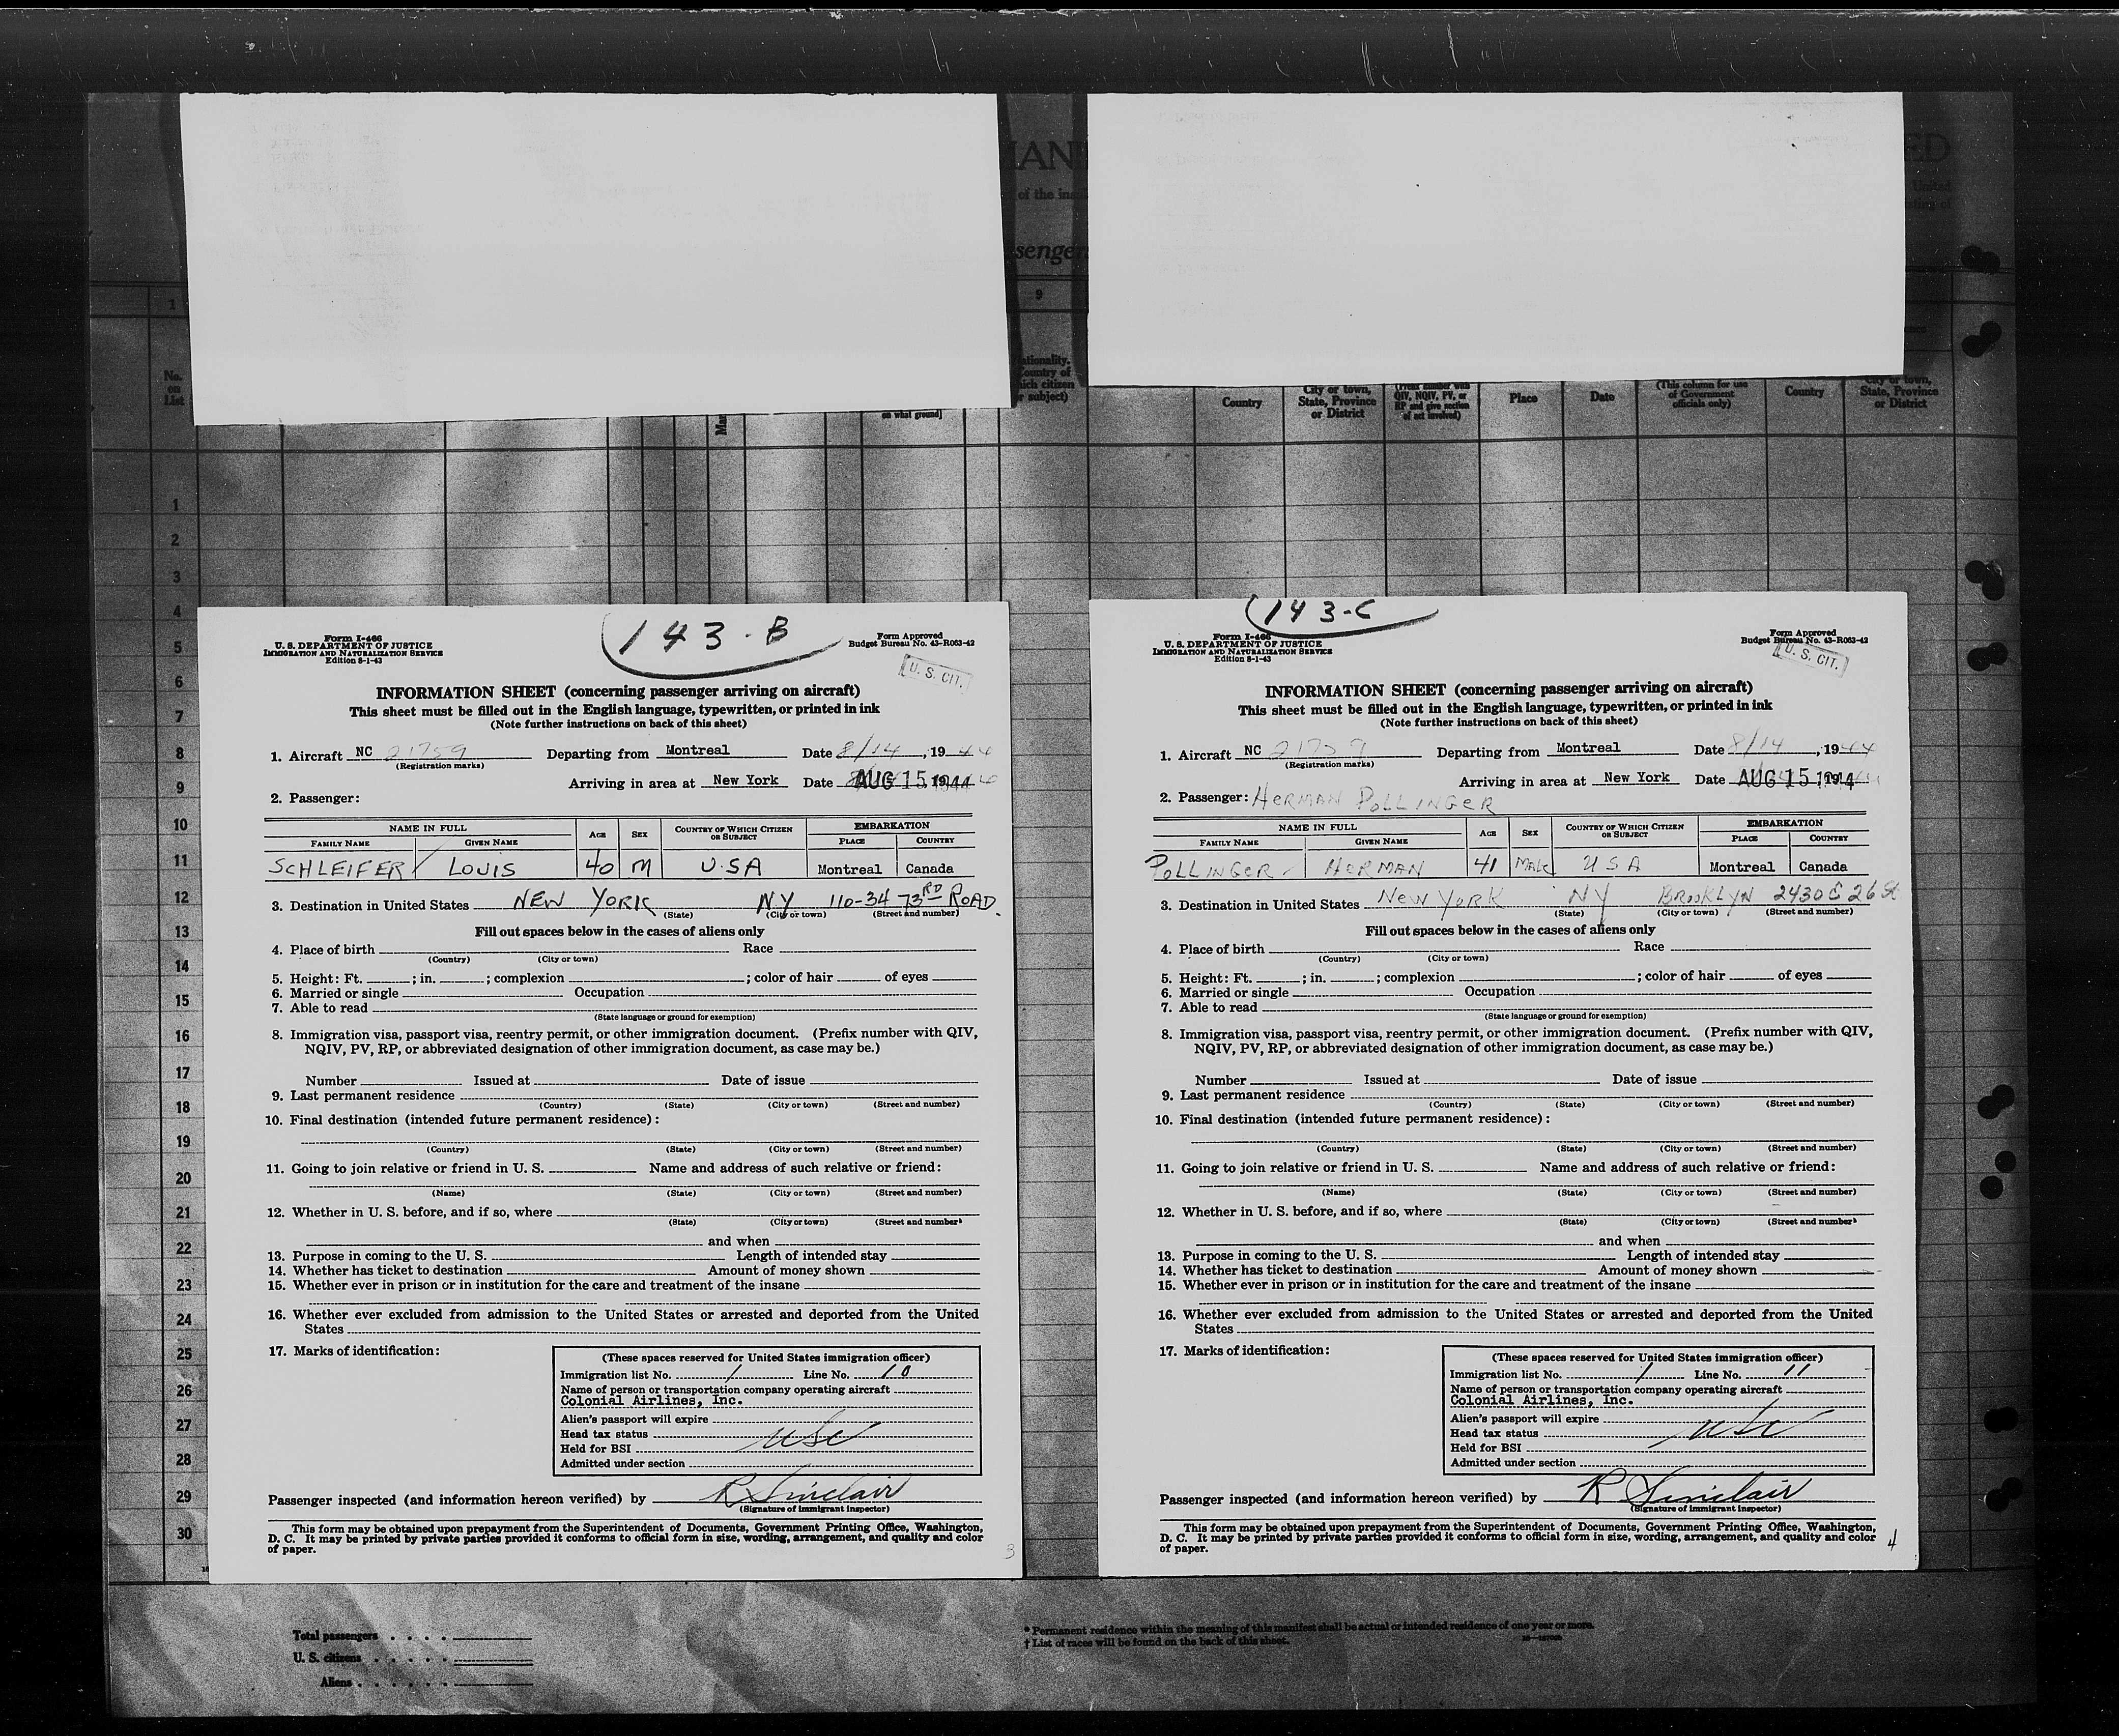 IAN
ED
of the in
United
senger
1
9
No.
on
List
ationality.
Country of
which citizen
or subject)
on what ground]
Country
City or town,
State, Province
or District
QIV, NQIV, PV, or
RP and give section
of act involved)
Place
Date
(This column for use
of Government
officials only)
Country
City or town,
State, Province
or District
1
2
3
4
5
6
7
8
9
10
11
12
13
14
15
16
17
18
19
20
21
22
23
24
25
26
27
28
29
30
143-B
Form I-466
U. S. DEPARTMENT OF JUSTICE
IMMIGRATION AND NATURALIZATION SERVICE
Edition 8-1-43
Form Approved
Budget Bureau No. 43-R063-42
U. S. CIT.
INFORMATION SHEET (concerning passenger arriving on aircraft)
This sheet must be filled out in the English language, typewritten, or printed in ink
(Note further instructions on back of this sheet)
1. Aircraft NC 21759 Departing from Montreal Date 8/14, 1944
(Registration marks)
Arriving in area at New York Date AUG 15 1944
2. Passenger:
NAME IN FULL AGE SEX COUNTRY OF WHICH CITIZEN OR SUBJECT EMBARKATION
FAMILY NAME GIVEN NAME PLACE COUNTRY
SCHLEIFER LOUIS 40 M U.S.A Montreal Canada
3. Destination in United States NEW YORK NY 110-34 73RD ROAD.
(State) (City or town) (Street and number)
Fill out spaces below in the cases of aliens only
4. Place of birth Race
(Country) (City or town)
5. Height: Ft. ; in. ; complexion ; color of hair of eyes
6. Married or single Occupation
7. Able to read
(State language or ground for exemption)
8. Immigration visa, passport visa, reentry permit, or other immigration document. (Prefix number with QIV,
NQIV, PV, RP, or abbreviated designation of other immigration document, as case may be.)
Number Issued at Date of issue
9. Last permanent residence
(Country) (State) (City or town) (Street and number)
10. Final destination (intended future permanent residence):
(Country) (State) (City or town) (Street and number)
11. Going to join relative or friend in U. S. Name and address of such relative or friend:
(Name) (State) (City or town) (Street and number)
12. Whether in U. S. before, and if so, where
(State) (City or town) (Street and number)
and when
13. Purpose in coming to the U. S. Length of intended stay
14. Whether has ticket to destination Amount of money shown
15. Whether ever in prison or in institution for the care and treatment of the insane
16. Whether ever excluded from admission to the United States or arrested and deported from the United
States
17. Marks of identification:
(These spaces reserved for United States immigration officer)
Immigration list No. 1 Line No. 10
Name of person or transportation company operating aircraft
Colonial Airlines, Inc.
Alien's passport will expire
Head tax status USC
Held for BSI
Admitted under section
Passenger inspected (and information hereon verified) by R Sinclair
(Signature of immigrant inspector)
This form may be obtained upon prepayment from the Superintendent of Documents, Government Printing Office, Washington,
D. C. It may be printed by private parties provided it conforms to official form in size, wording, arrangement, and quality and color
of paper.
3
143-C
Form I-466
U. S. DEPARTMENT OF JUSTICE
IMMIGRATION AND NATURALIZATION SERVICE
Edition 8-1-43
Form Approved
Budget Bureau No. 43-R063-42
U. S. CIT.
INFORMATION SHEET (concerning passenger arriving on aircraft)
This sheet must be filled out in the English language, typewritten, or printed in ink
(Note further instructions on back of this sheet)
1. Aircraft NC 21759 Departing from Montreal Date 8/14, 1944
(Registration marks)
Arriving in area at New York Date AUG 15 1944
2. Passenger: HERMAN POLLINGER
NAME IN FULL AGE SEX COUNTRY OF WHICH CITIZEN OR SUBJECT EMBARKATION
FAMILY NAME GIVEN NAME PLACE COUNTRY
POLLINGER HERMAN 41 MALE U S A Montreal Canada
3. Destination in United States NEW YORK NY BROOKLYN 2430 E 26 St
(State) (City or town) (Street and number)
Fill out spaces below in the cases of aliens only
4. Place of birth Race
(Country) (City or town)
5. Height: Ft. ; in. ; complexion ; color of hair of eyes
6. Married or single Occupation
7. Able to read
(State language or ground for exemption)
8. Immigration visa, passport visa, reentry permit, or other immigration document. (Prefix number with QIV,
NQIV, PV, RP, or abbreviated designation of other immigration document, as case may be.)
Number Issued at Date of issue
9. Last permanent residence
(Country) (State) (City or town) (Street and number)
10. Final destination (intended future permanent residence):
(Country) (State) (City or town) (Street and number)
11. Going to join relative or friend in U. S. Name and address of such relative or friend:
(Name) (State) (City or town) (Street and number)
12. Whether in U. S. before, and if so, where
(State) (City or town) (Street and number)
and when
13. Purpose in coming to the U. S. Length of intended stay
14. Whether has ticket to destination Amount of money shown
15. Whether ever in prison or in institution for the care and treatment of the insane
16. Whether ever excluded from admission to the United States or arrested and deported from the United
States
17. Marks of identification:
(These spaces reserved for United States immigration officer)
Immigration list No. 1 Line No. 11
Name of person or transportation company operating aircraft
Colonial Airlines, Inc.
Alien's passport will expire
Head tax status USC
Held for BSI
Admitted under section
Passenger inspected (and information hereon verified) by R Sinclair
(Signature of immigrant inspector)
This form may be obtained upon prepayment from the Superintendent of Documents, Government Printing Office, Washington,
D. C. It may be printed by private parties provided it conforms to official form in size, wording, arrangement, and quality and color
of paper.
4
Total passengers . . . .
U. S. citizens . . . . .
Aliens . . . . . .
* Permanent residence within the meaning of this manifest shall be actual or intended residence of one year or more.
† List of races will be found on the back of this sheet.